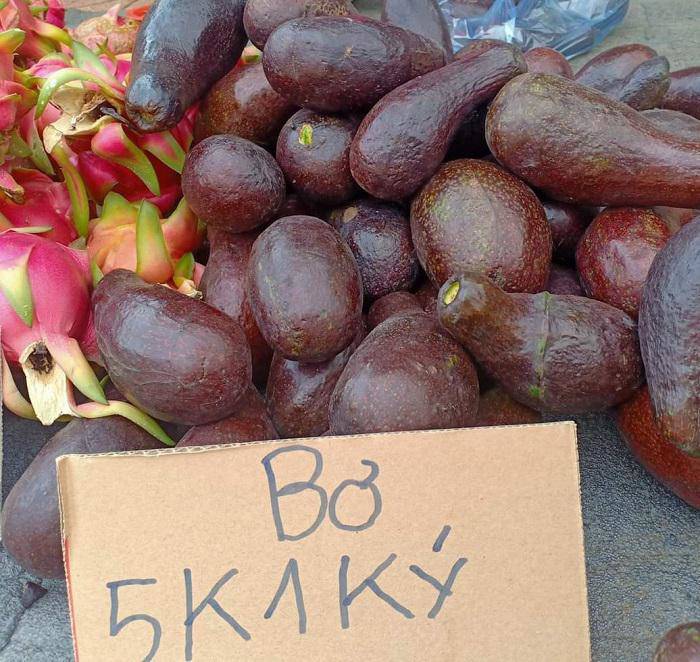 Bơ
5K1KÝ